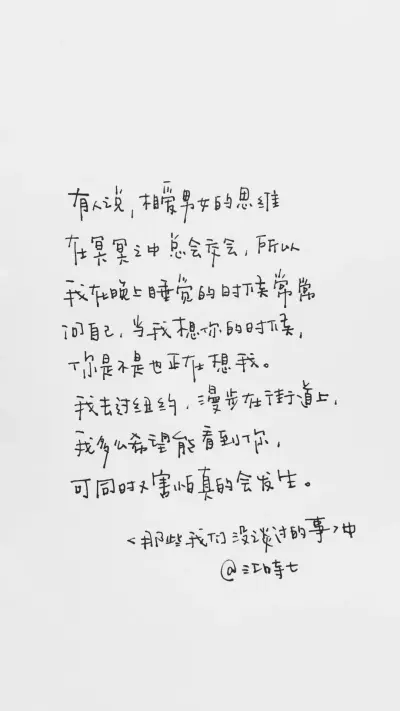 有人说，相爱男女的思维
在冥冥之中总会交会，所以
我在晚上睡觉的时候常常
问自己，当我想你的时候，
你是不是也正在想我。
我去过纽约，漫步在街道上，
我多么希望能看到你，
可同时又害怕真的会发生。
《那些我们没谈过的事》中
@江時七